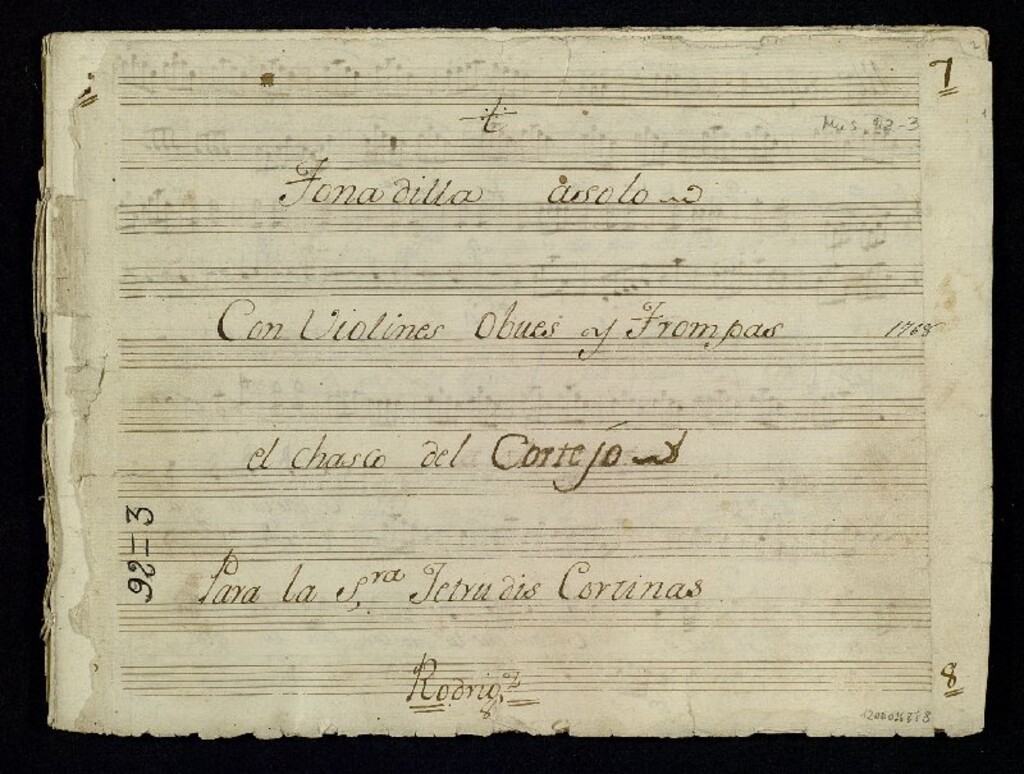 7
t
Mus 92-3
Tonadilla assolo
Con Violines Obues y Trompas 1768
el chasco del Cortejo
92=3
Para la S.ra Jetrudis Cortinas
Rodrig.z
8